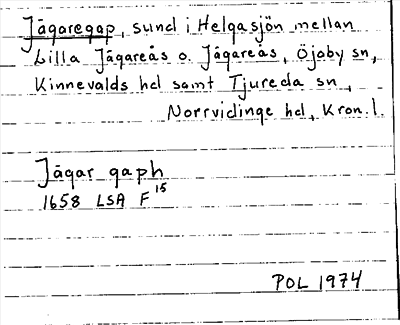 Jägaregap, sund i Helgasjön mellan
Lilla Jägareås o. Jägareås, Öjaby sn,
Kinnevalds hd samt Tjureda sn,
Norrvidinge hd, Kron. l.
Jägar gaph
1658 LSA F 15
POL 1974